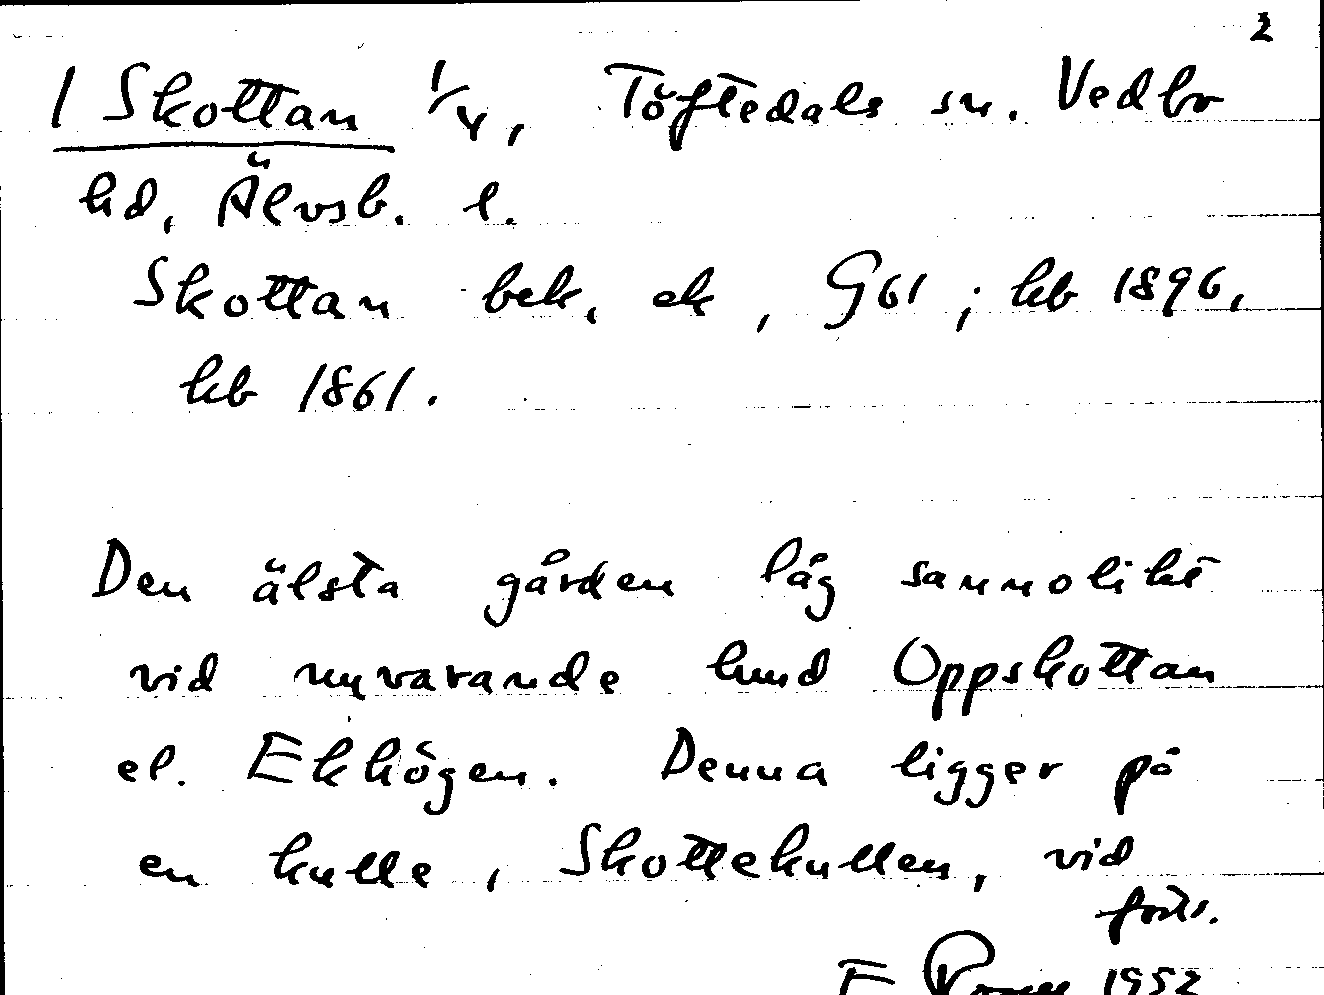 2
1 Skottan 1/4, Töftedals sn. Vedbo
hd, Älvsb. l.
Skottan bek, ek, G61; kb 1896,
kb 1861.
Den älsta gården låg sannolikt
vid nuvarande hmd Oppskottan
el. Ekhögen. Denna ligger på
en kulle, Skottekullen, vid
forts.
F 1952